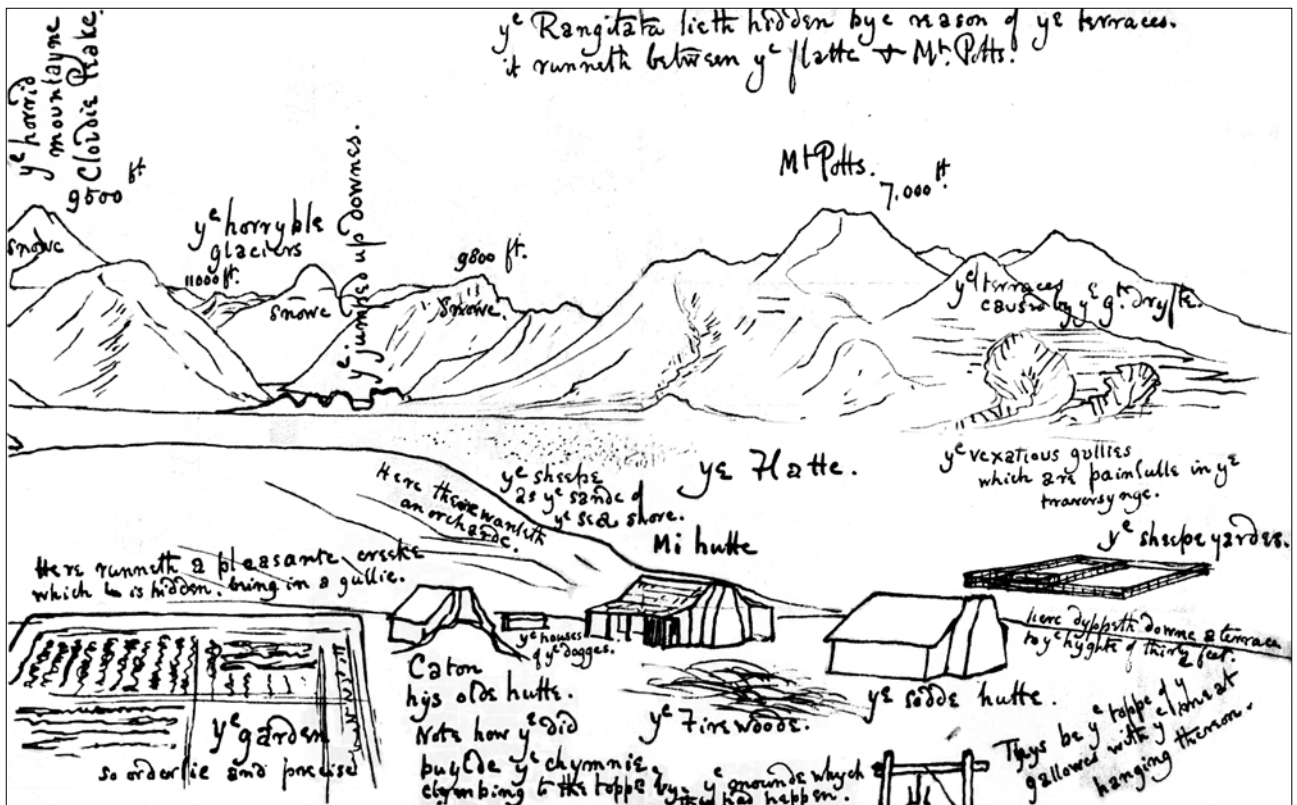 yᵉ Rangitata lieth hidden bye reason of yᵉ terraces.
it runneth between yᵉ flatte & Mᵗ. Potts.
yᵉ horrid
mountayne
Cloudie Peake.
9500 ft
Mᵗ Potts.
7.000 ft.
yᵉ horryble
glaciers
11000 ft.
yᵉ jumped up downes.
9800 ft.
snowe
snowe
snowe.
yᵉ terraces
caused by yᵉ gᵗ. dryfte.
yᵉ Flatte.
yᵉ vexatious gullies
which are painfulle in yᵉ
traversynge.
yᵉ sheepe
as yᵉ sande of
yᵉ sea shore.
Here there wanteth
an orcharde.
Mi hutte
yᵉ sheepe yardes.
Here runneth a pleasante creeke
which is hidden, being in a gullie.
yᵉ houses
of yᵉ dogges.
here dyppeth downe a terrace
to yᵉ hyghte of thirty feet.
Caton
hys olde hutte.
Note how yᵉ did
buylde yᵉ chymnie,
clymbing to the toppe by yᵉ mounde whych
they had happen.
yᵉ Firewoode.
yᵉ sodde hutte.
yᵉ garden
so orderlie and precise
Thys be yᵉ toppe of yᵉ
gallows with yᵉ at
hanging thereon.